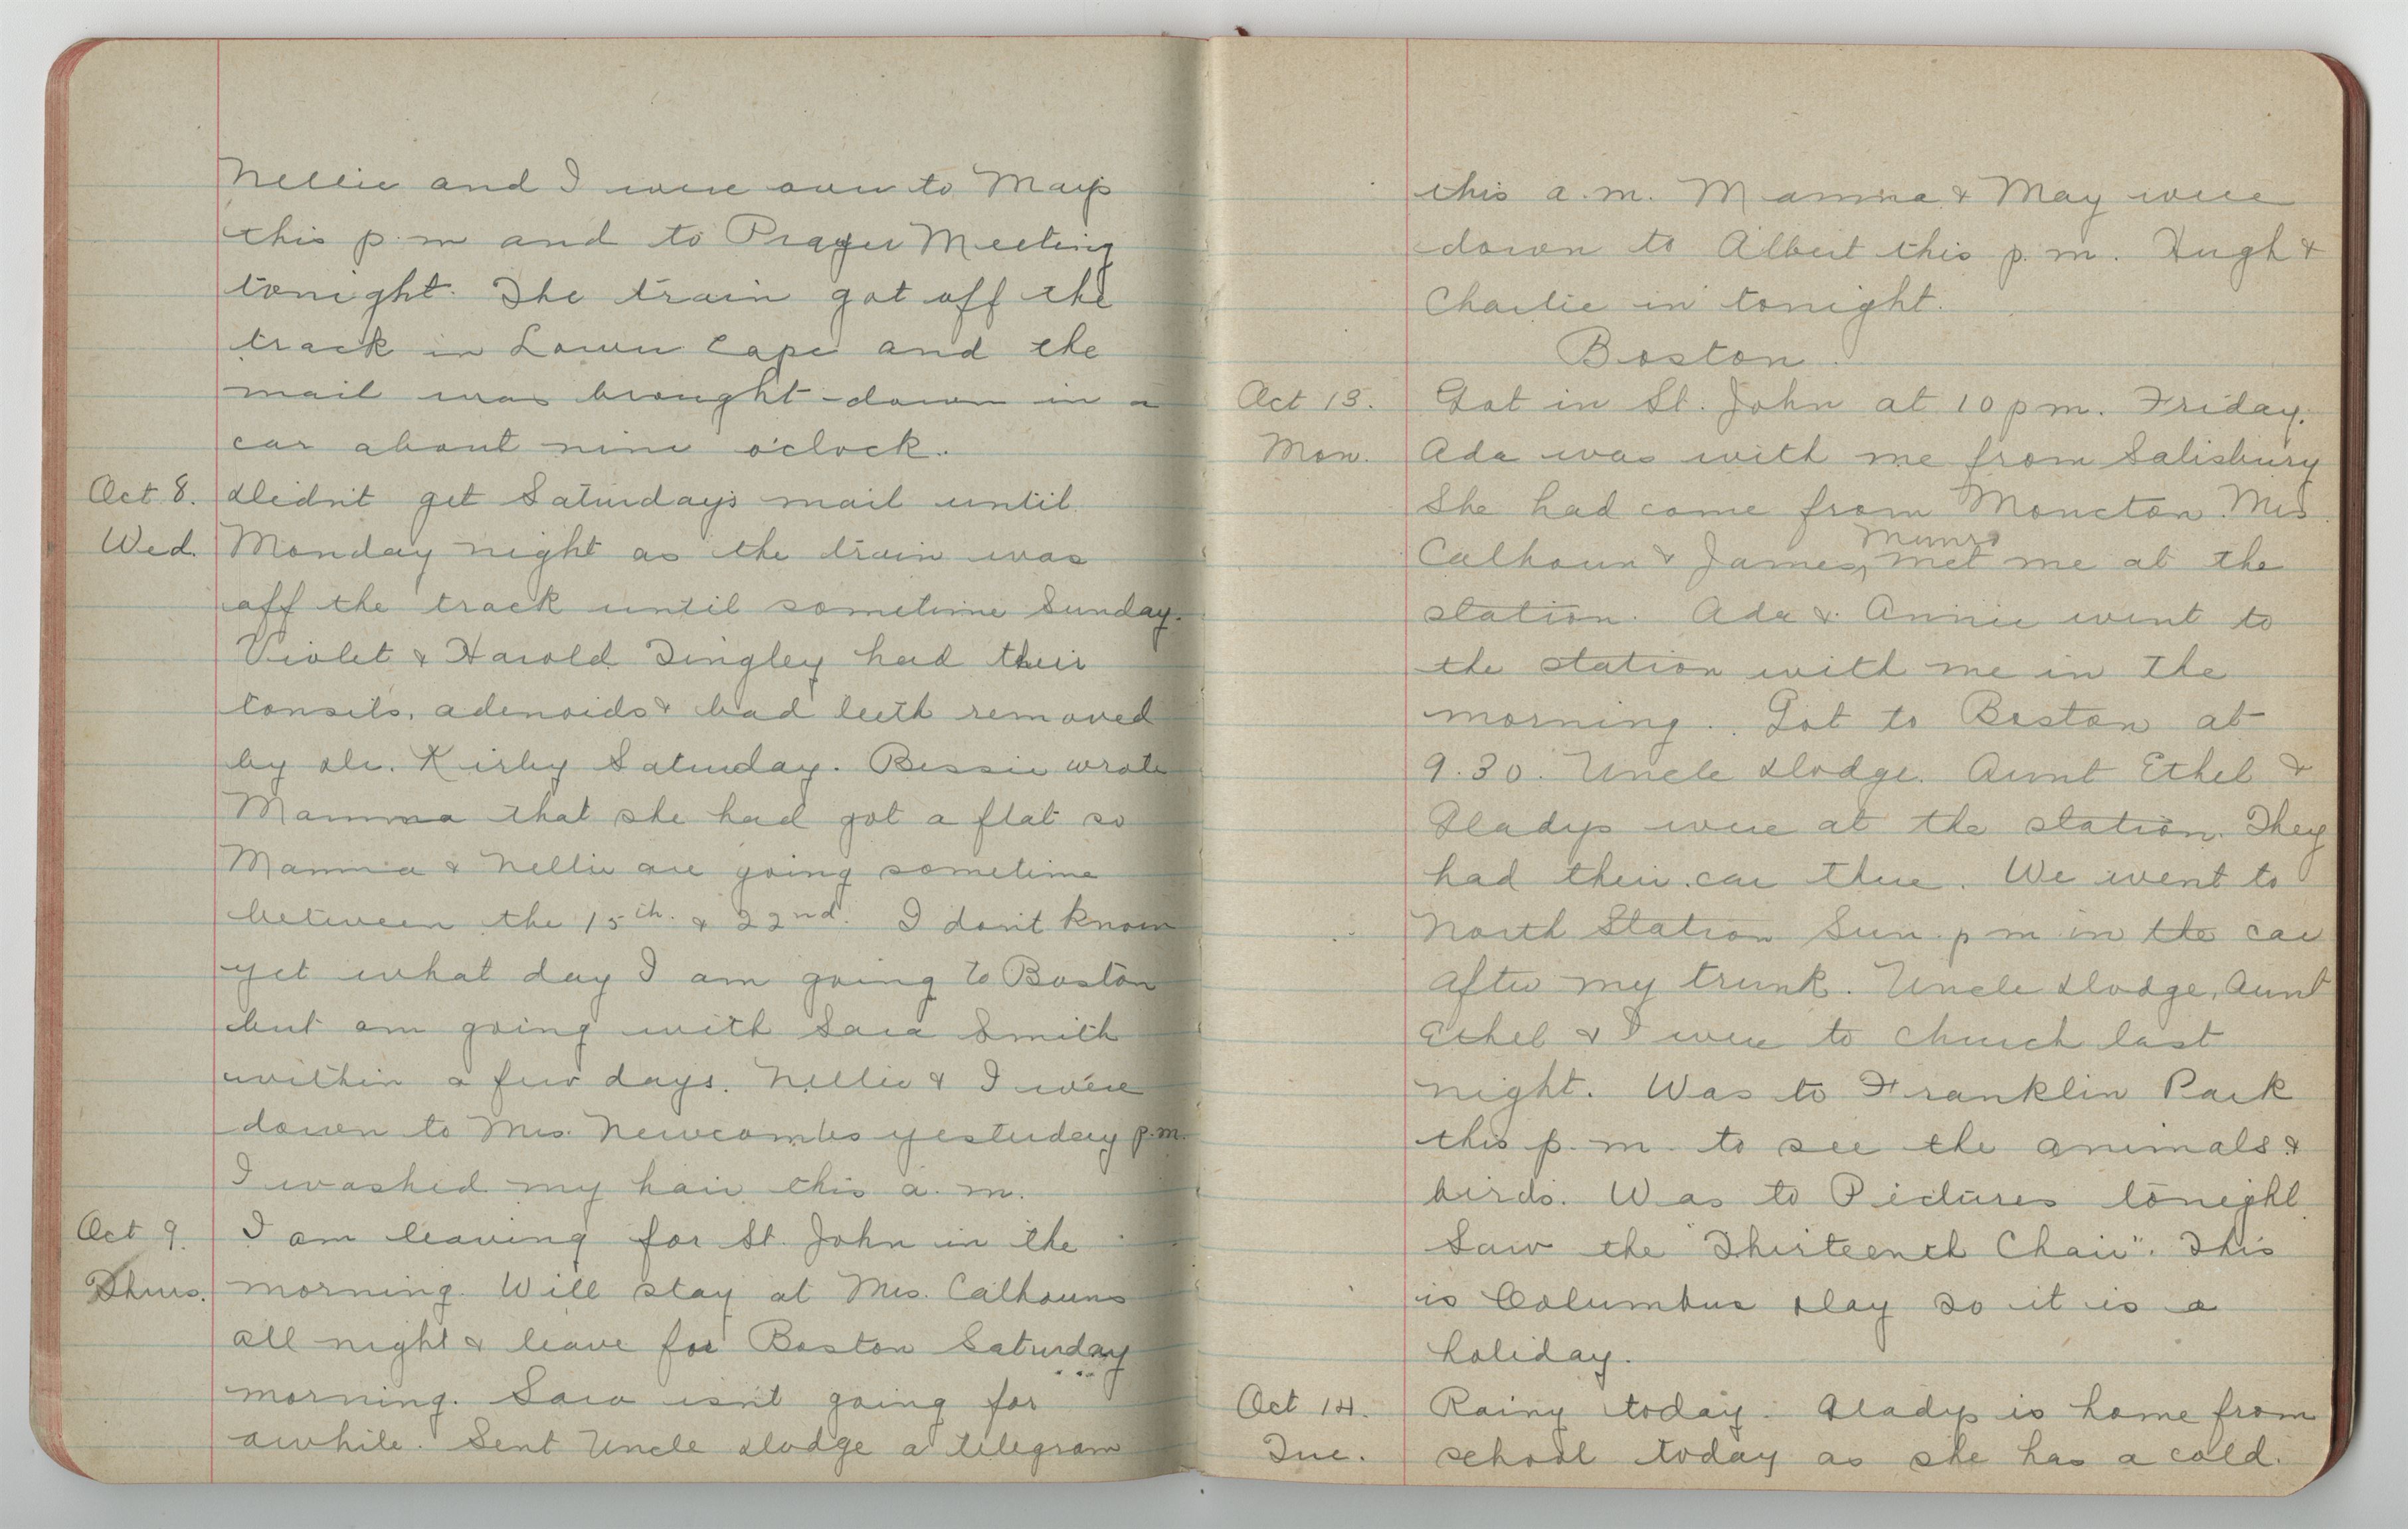 Nellie and I were over to May's
this p.m and to Prayer Meeting
tonight. The train got off the
track in Lower Cape and the
mail was brought down in a
car about nine o'clock.
Oct 8. Didn't get Saturday's mail until
Wed. Monday night as the train was
off the track until sometime Sunday.
Violet & Harold Tingley had their
tonsils, adenoids & bad teeth removed
by Dr. Kirby Saturday. Bessie wrote
Mamma that she had got a flat so
Mamma & Nellie are going sometime
between the 15th. & 22nd. I don't know
yet what day I am going to Boston
but am going with Sara Smith
within a few days. Nellie & I were
down to Mrs. Newcombs yesterday p.m.
I washed my hair this a.m.
Oct 9. I am leaving for St. John in the
Thurs. morning. Will stay at Mrs. Calhouns
all night & leave for Boston Saturday
morning. Sara isn't going for
awhile. Sent Uncle Dodge a telegram
this a.m. Mamma & May were
down to Albert this p.m. Hugh &
Charlie in tonight.
Boston.
Oct 13. Got in St. John at 10 p m. Friday.
Mon. Ada was with me from Salisbury
She had come from Moncton. Mrs.
Munro
Calhoun & James, met me at the
station. Ada & Annie went to
the station with me in the
morning. Got to Boston at
9.30. Uncle Dodge. Aunt Ethel &
Gladys were at the station. They
had their car there. We went to
North Station Sun. p m in the car
after my trunk. Uncle Dodge, Aunt
Ethel & I were to church last
night. Was to Franklin Park
this p.m. to see the animals &
birds. Was to Pictures tonight
Saw the "Thirteenth Chair". This
is Columbus Day so it is a
holiday.
Oct 14. Rainy today. Gladys is home from
Tue. school today as she has a cold.